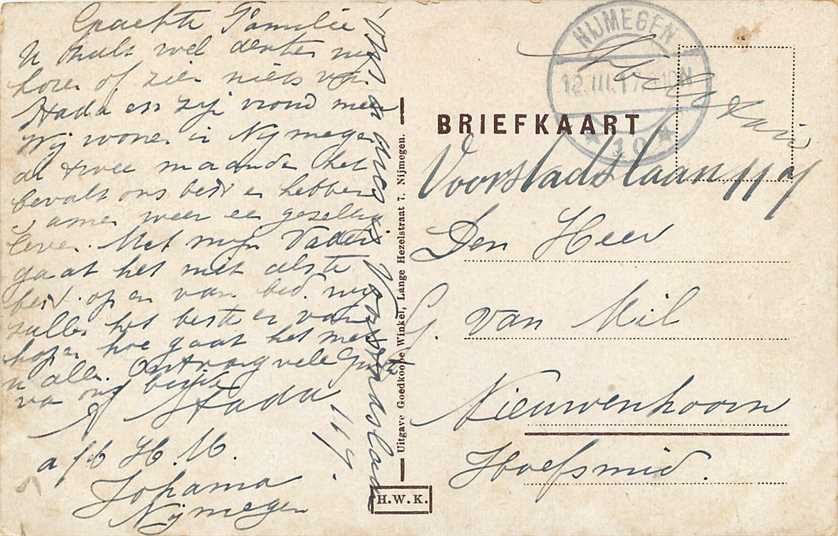 Geachte Familie
U zult wel denken wij
horen of zien niets van
Hada en zij vrond mee
Wij wonen in Nijmegen
al twee maanden het
bevalt ons best en hebben
samen weer een gezellig
leven. Met mijn Vader
gaat het niet al te
best. op en van bed. wij
zullen het beste er van
hopen hoe gaat het met
u alle. Ontvang vele groet
van ons beide
Hada
a/b H. M.
Johanna
Nijmegen
ons adres is Voorstadslaan
117
Uitgave Goedkoope Winkel, Lange Hezelstraat 7. Nijmegen.
H.W.K.
NIJMEGEN
12.III.17. 10N
★ 10 ★
BRIEFKAART
Voorstadslaan 117
Den Heer
G. van Mil
Nieuwenhoorn
Hoefsmid.